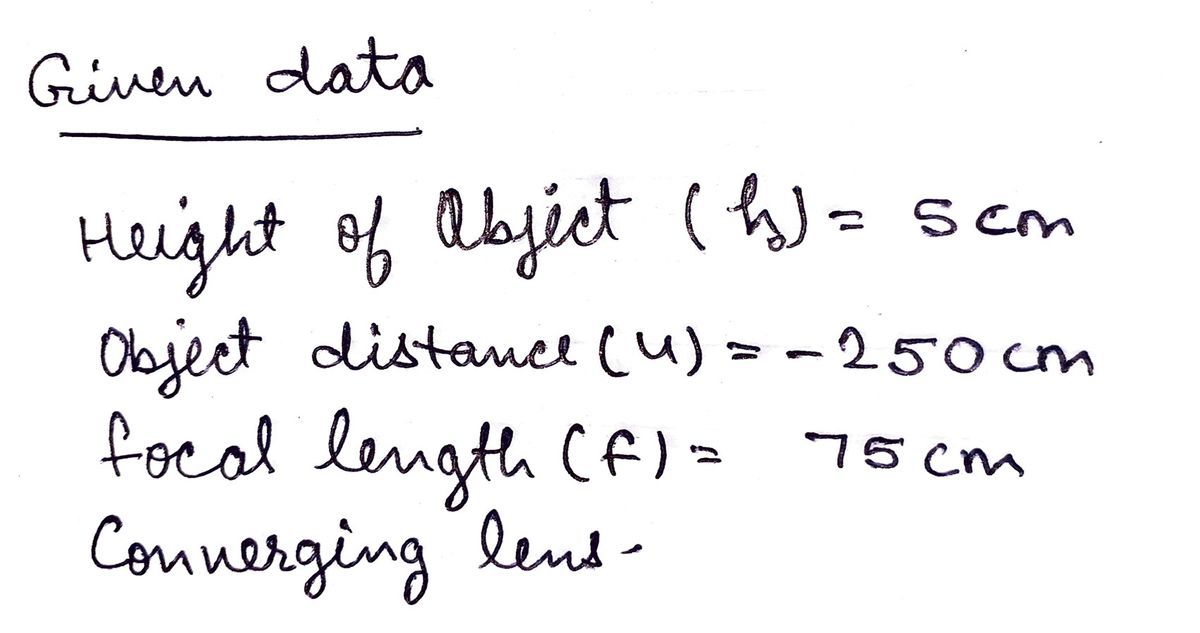 Given data
Height of Object (h₀) = 5 cm
Object distance (u) = - 250 cm
focal length (f) = 75 cm
Converging lens -